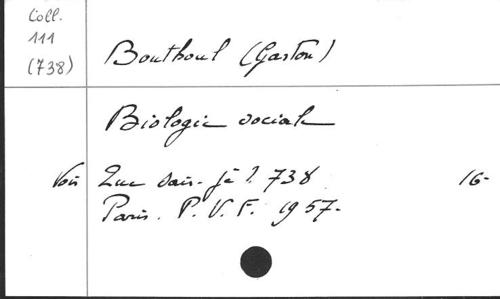 Coll.
111
(738)
Bouthoul (Gaston)
Biologie sociale
Voir Que sais-je? 738 16-
Paris. P.U.F. 1957-